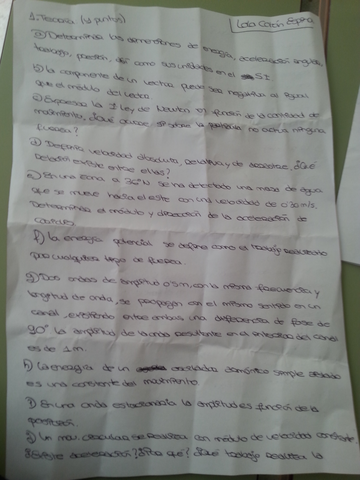 1. Teoría (4 puntos)
a) Determina las dimensiones de energía, aceleración angular,
trabajo, presión, así como sus unidades en el SI
b) la componente de un vector puede ser negativa al igual
que el módulo del vector
c) Expresa la 1ª Ley de Newton en función de la cantidad de
movimiento, ¿Qué ocurre si sobre la no actúa ninguna
fuerza?
d) velocidad absoluta, relativa y de arrastre, ¿Qué
relación existe entre ellas?
e) En una zona a 36ºN se ha detectado una masa de agua
que se mueve hacia el este con una velocidad de m/s
Determina el módulo y dirección de la aceleración de
Coriolis
f) la energía potencial se define como el trabajo
por cualquier tipo de fuerza.
g) Dos ondas de amplitud 0'5m, con la misma frecuencia y
longitud de onda, se propagan con el mismo sentido en un
canal, existiendo entre ambas una diferencia de fase de
90º la amplitud de la onda resultante en el del canal
es de 1m.
h) La energía de un oscilador armónico simple
es una constante del movimiento
i) En una onda estacionaria la amplitud es función de la
posición.
j) Un mov. circular se realiza con módulo de velocidad constante
¿Existe aceleración? ¿Por qué? ¿Qué trabajo realiza la